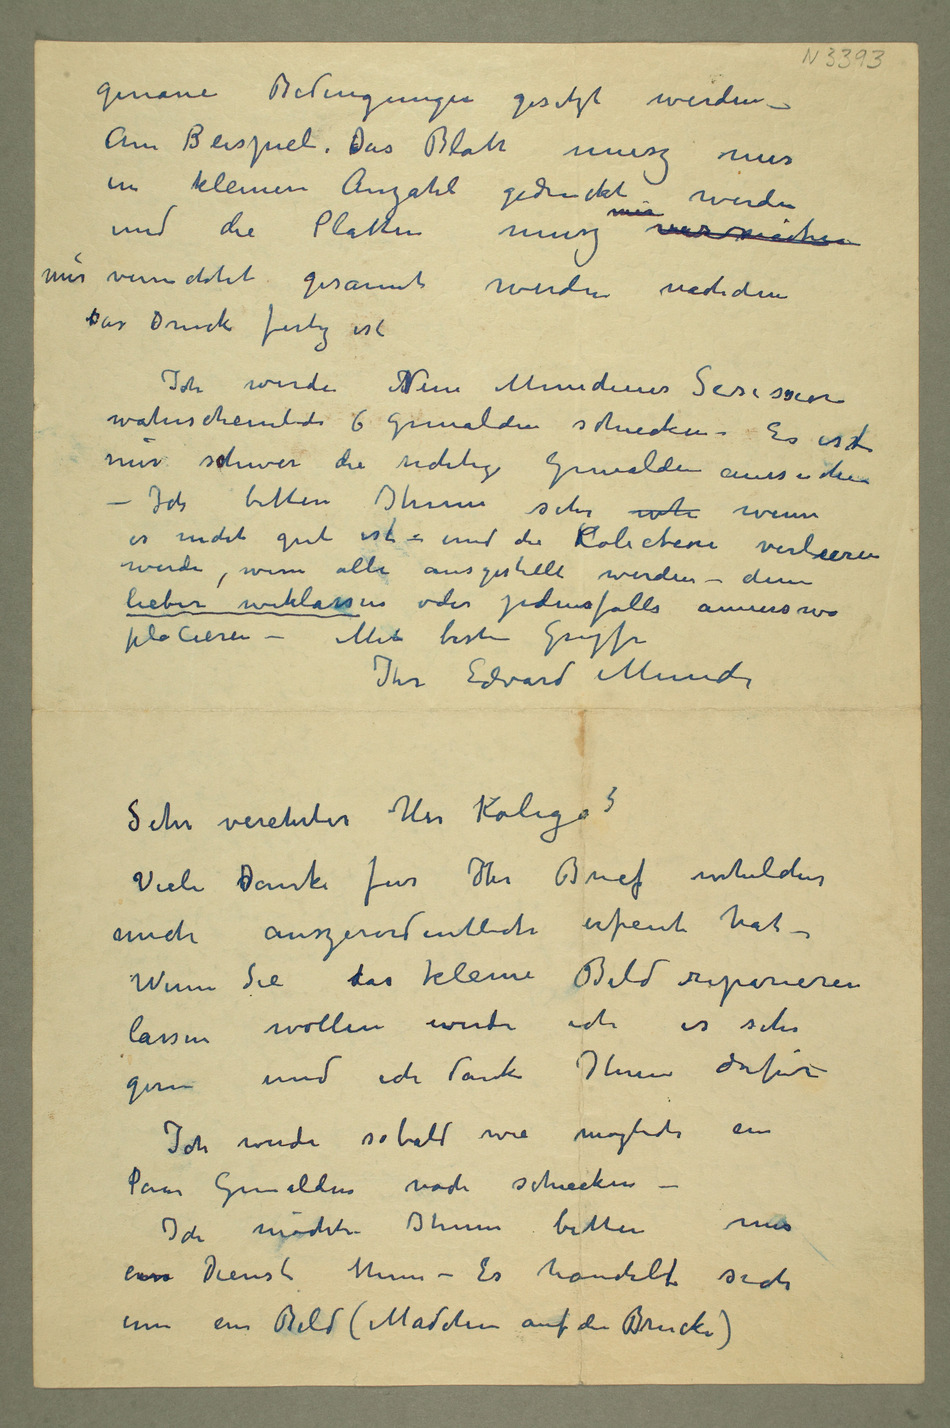 N 3393
genaue Bedingungen gesetzt werden –
Am Beispiel. Das Blatt musz nur
in kleinen Anzahl gedruckt werden
und die Platten musz mir
mir vernichtet gesannt werden nachdem
das Druck fertig ist
Ich werde Neue Münchener Sesession
wahrscheinlich 6 Gemälden schicken – Es ist
mir schwer die richtige Gemälden aussuchen
– Ich bitten Ihnen sehr wenn
es nicht gut ist – und die Kolection verlieren
werde, wenn alle ausgestellt werden – denn
lieber weklassen oder jedensfalls annerswo
placieren – Mit besten Grüsse
Ihr Edvard Munch
Sehr verehrter Herr Kolega!
Viele Danke für Ihr Brief whelcher
mich auszerordentlich erfeut hat –
Wenn Sie das kleine Bild reparieren
lassen wollen werde ich es sehr
gern und ich danke Ihnen dafür –
Ich werde sobald wie möglich ein
Paar Gemälden noch schicken –
Ich möchte Ihnen bitten mir
ein Dienst thun – Es handelt sich
um ein Bild (Mädchen auf die Brücke)